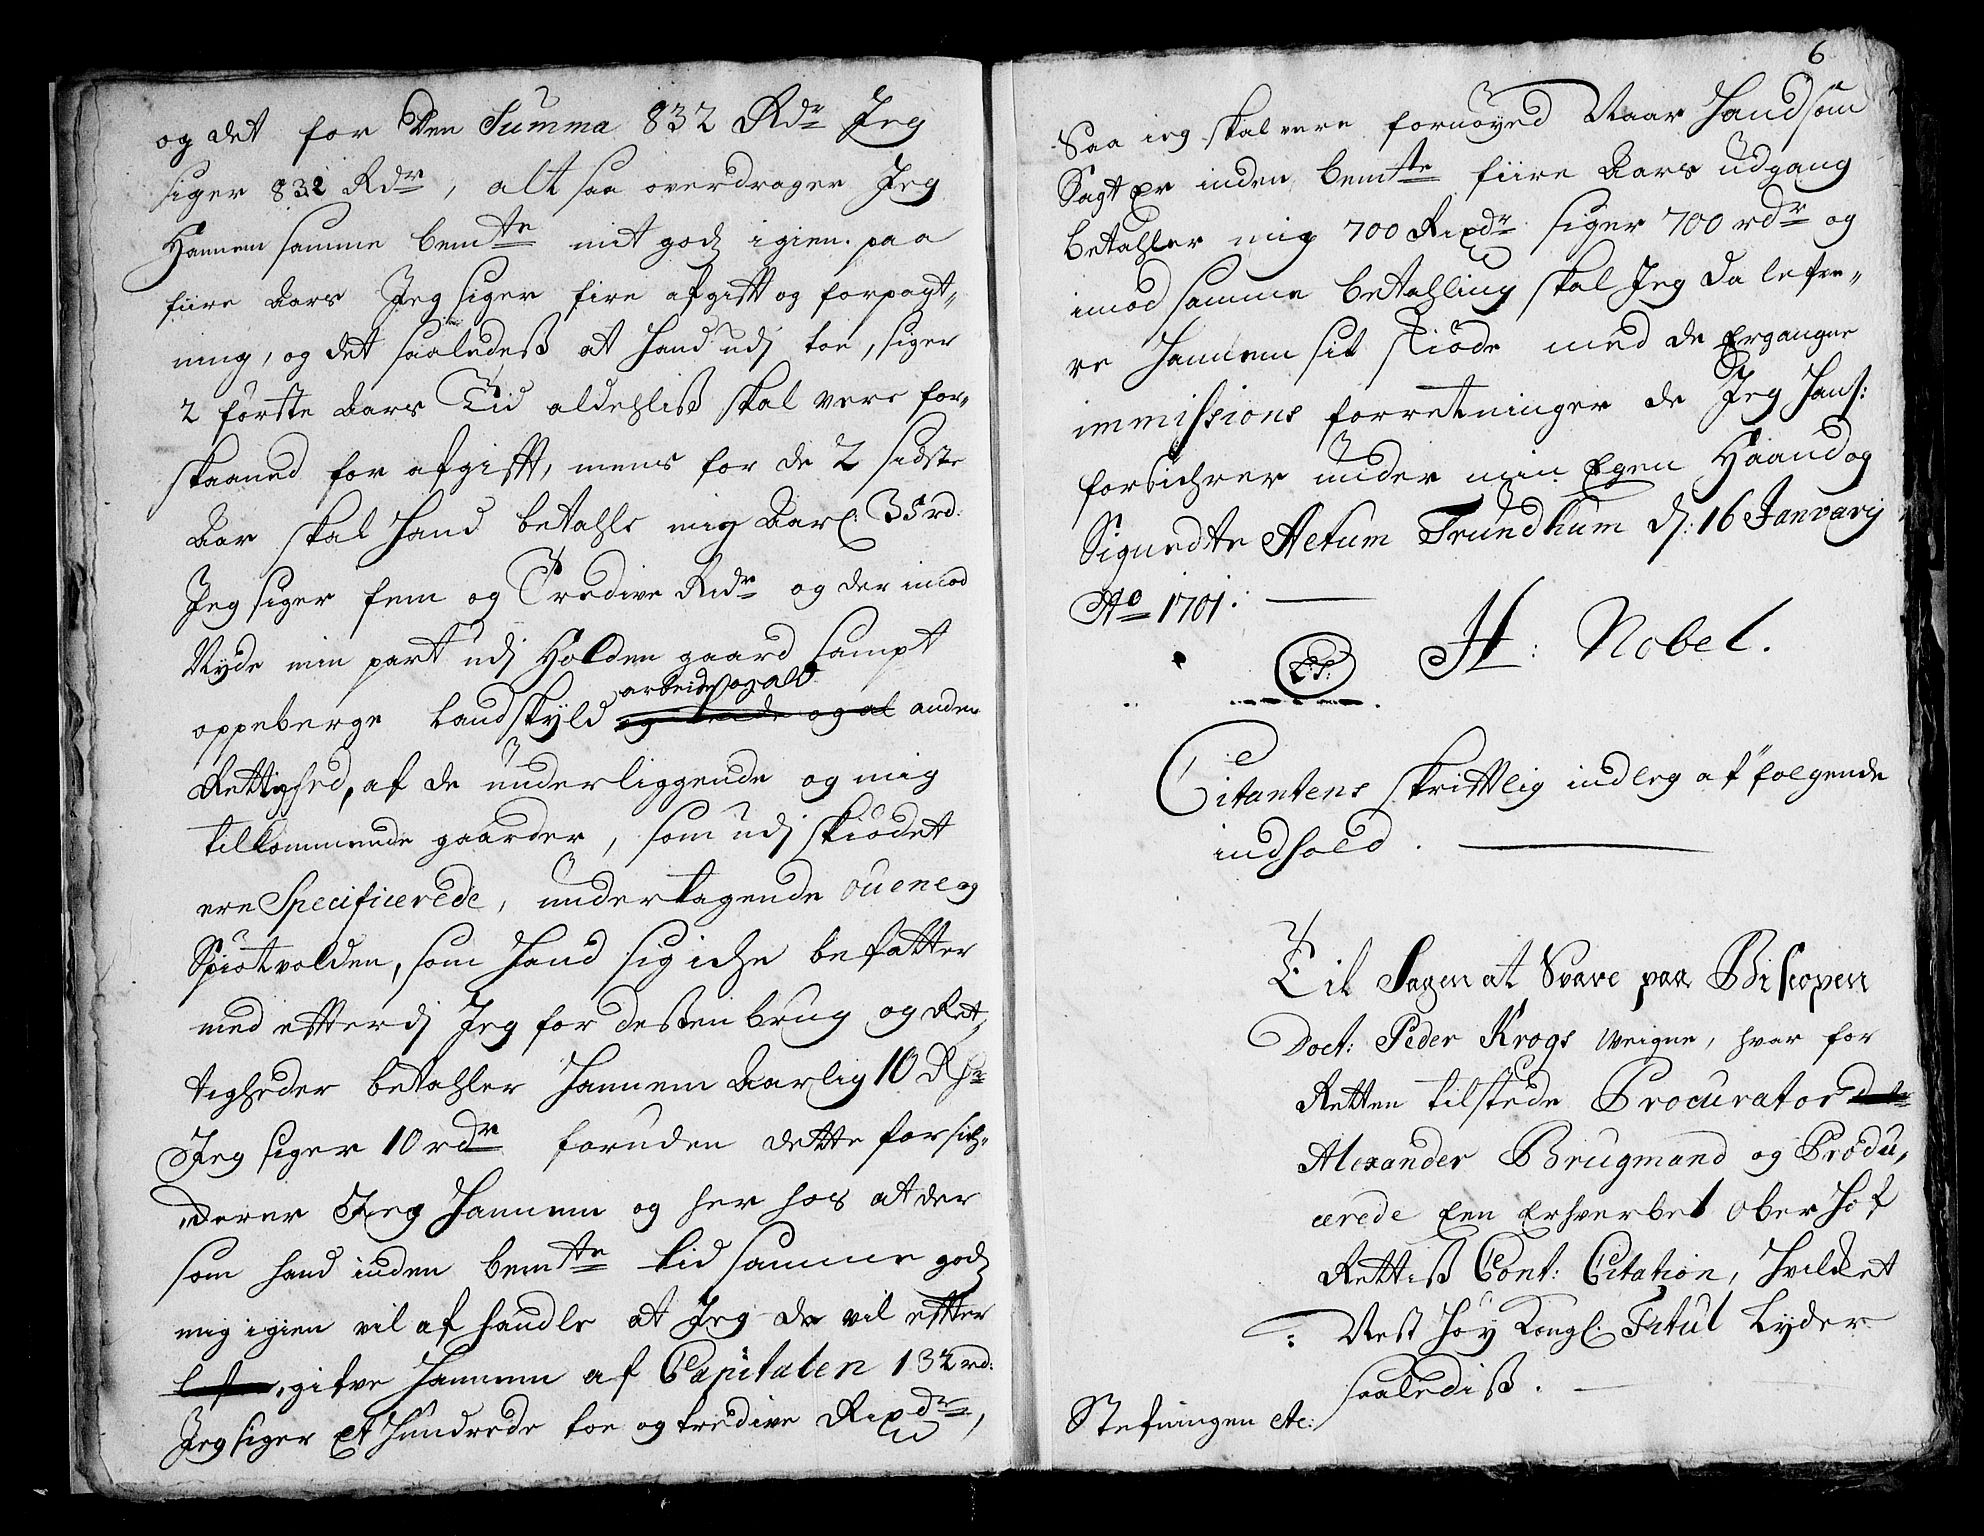 og det for den Summa 832 Rdr Jeg
siger 832 Rdr, alt saa overdrager Jeg
Hannem samme bemte mit godz igien paa
fiire Aars Jeg siger fire afgifft og forpagt„
ning, og det saaledeß at hand udj toe, siger
2 förste Aars Tid aldehliß skal vere for„
skaaned for afgifft, mens for de 2 sidste
Aar skal hand betahle mig Aarl: 35 rd:
Jeg siger fem og Tredive Rdr og der imod
Nyde min part udj Holden gaard sampt
oppeberge Landskyld arbeide og ald anden
Rettighed, af de underliggende og mig
tilkommende gaarder, som udj skiödet
ere Specificerede, undertagende ouene og
Spiötvolden, som hand sig iche befatter
med effterdj Jeg for desßen brug og Ret„
tigheder betahler hannem Aarlig 10 Rdr
Jeg siger 10 rdr foruden dette forsich„
derer Jeg Hannem og her hos at der
som hand inden bemte tid samme godz
mig igien vil af handle at Jeg da vil effter
gifve hannem af Capitalen 132 rd:
Jeg siger Et hundrede toe og tredive Rixdr,
6
Saa ieg skal vere fornöyed Naar Hand som
Sagt Er inden bemte fiire Aars udgang
betahler mig 700 Rixdr siger 700 rdr og
imod samme betahling skal Jeg da lefve„
re hannem sit skiöde med de Ergangne
immissions forretninger de Jeg hanß:
forsichrer under min Egen Haand og
Signedte Actum Trundhium d: 16 Janvarij
Ao 1701:
L:S: H: Nobel.
Citantens skrifftlig indleg af fölgende
indhold.
Til Sagen at Svare paa Biscopen
Doct: Peder Krogs Weigne, hvar for
Retten tilstede Procurator
Alexander Brugmand og Produ„
cerede Een Erhverbet Ober Hof
Rettiß Cont: Citation, hvilket
Nest höy Kongl: Titul Lyder
saalediß.
Stefningen etc: